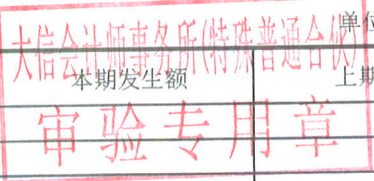 大信会计师事务所(特殊普通合伙)
单位
本期发生额
上期
审验专用章